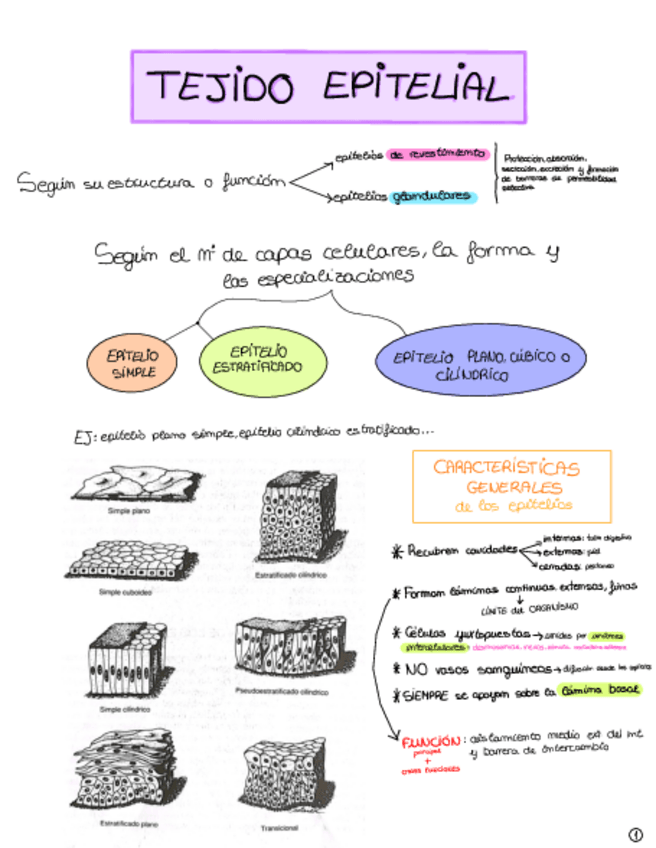 TEJIDO EPITELIAL
Según su estructura o función
epitelios de revestimiento
epitelios glandulares
Protección, absorción,
secreción, excreción y formación
de barreras de permeabilidad
selectiva
Según el nº de capas celulares, la forma y
las especializaciones
EPITELIO
SIMPLE
EPITELIO
ESTRATIFICADO
EPITELIO PLANO, CÚBICO O
CILÍNDRICO
EJ: epitelio plano simple, epitelio cilíndrico estratificado...
Simple plano
Estratificado cilíndrico
Simple cuboideo
Simple cilíndrico
Pseudoestratificado cilíndrico
Estratificado plano
Transicional
CARACTERÍSTICAS
GENERALES
de los epitelios
* Recubren cavidades
internas: tubo digestivo
externas: piel
cerradas: peritoneo
* Forman láminas continuas, extensas, finas
LÍMITE del ORGANISMO
* Células yuxtapuestas → unidas por uniones
intercelulares:
* NO vasos sanguíneos → difusión desde los capilares
* SIEMPRE se apoyan sobre la lámina basal
FUNCIÓN: aislamiento medio ext del int
y barrera de intercambio
principal
+
otras funciones
1